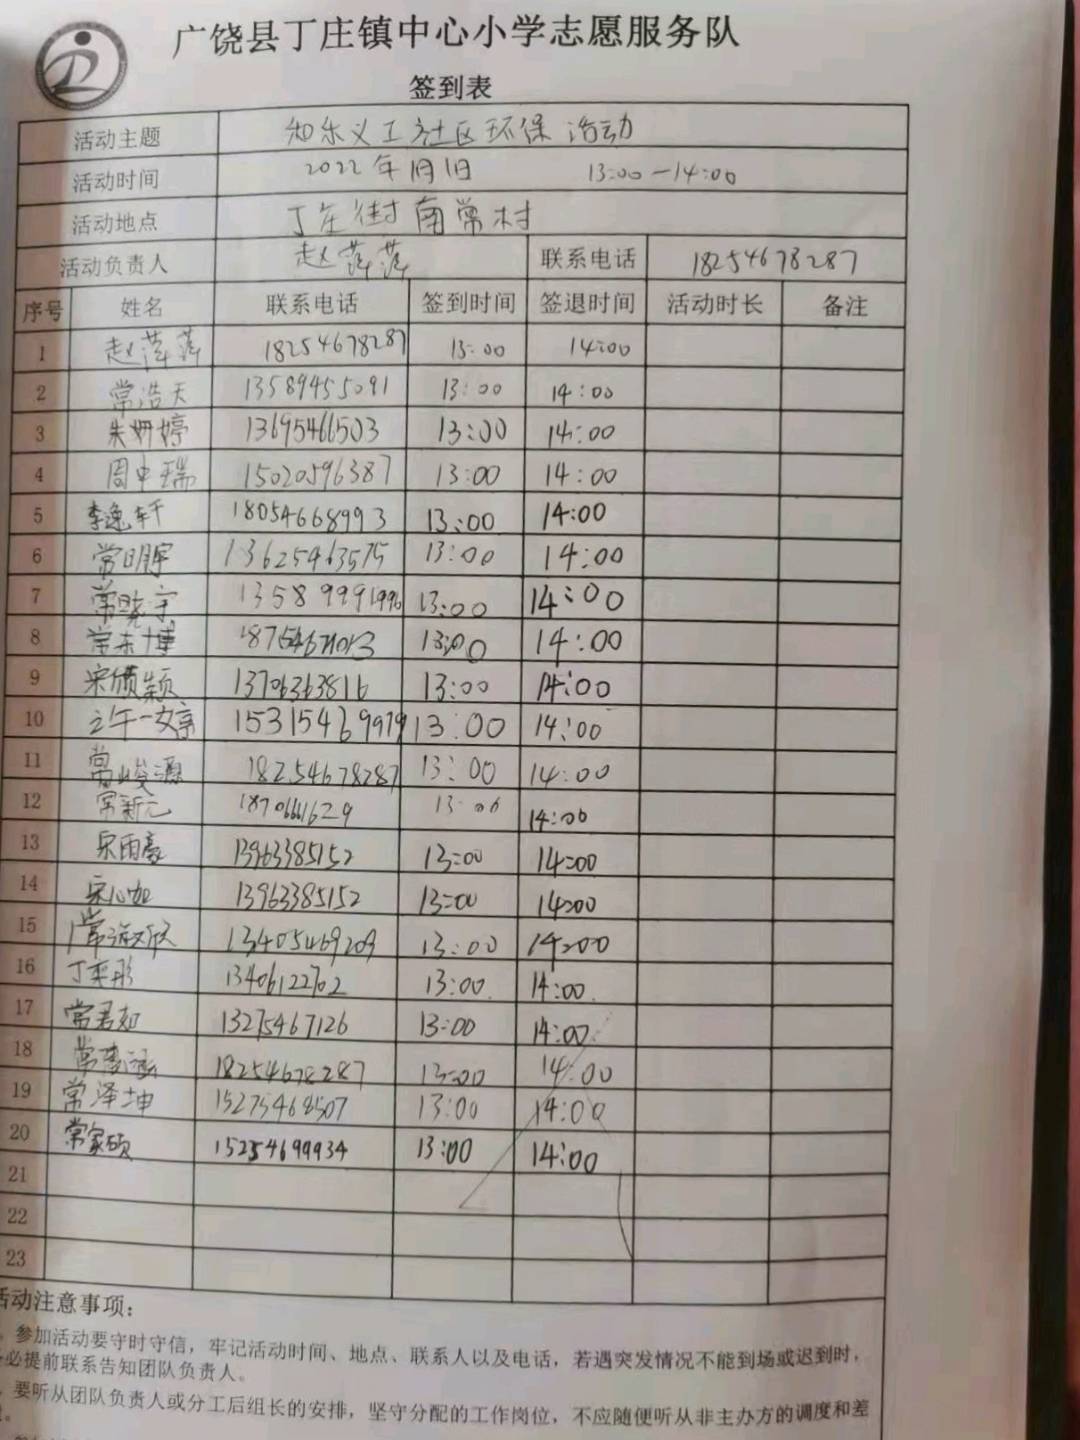 广饶县丁庄镇中心小学志愿服务队
签到表
活动主题 知乐义工社区环保活动
活动时间 2022年1月1日 13:00—14:00
活动地点 丁庄街南常村
活动负责人 赵萍萍 联系电话 18254678287
序号 姓名 联系电话 签到时间 签退时间 活动时长 备注
1 赵萍萍 18254678287 13:00 14:00
2 常浩天 13589455091 13:00 14:00
3 朱妍婷 13695466503 13:00 14:00
4 周中瑞 15020596387 13:00 14:00
5 李逸轩 18054668993 13:00 14:00
6 常明宇 13625463575 13:00 14:00
7 常晓宇 13589991996 13:00 14:00
8 常东博 13:00 14:00
9 宋倩颖 13706363816 13:00 14:00
10 15315469979 13:00 14:00
11 常峻源 18254678287 13:00 14:00
12 常新元 18706661629 13:00 14:00
13 宋雨豪 13963385152 13:00 14:00
14 宋心如 13963385152 13:00 14:00
15 13405469209 13:00 14:00
16 丁奕彤 13406122702 13:00 14:00
17 常君如 13275467126 13:00 14:00
18 18254678287 13:00 14:00
19 常泽坤 15275468507 13:00 14:00
20 常家硕 15254699934 13:00 14:00
21
22
23
活动注意事项：
参加活动要守时守信，牢记活动时间、地点、联系人以及电话，若遇突发情况不能到场或迟到时，
必提前联系告知团队负责人。
要听从团队负责人或分工后组长的安排，坚守分配的工作岗位，不应随便听从非主办方的调度和差